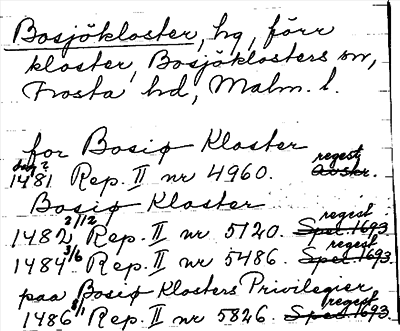 Bosjökloster, hg, förr
kloster, Bosjöklosters sn,
Frosta hd, Malm. l.
for Bosiø Kloster
dag? regest
1481 Rep. II nr 4960. Avskr.
Bosiø Kloster
2/12 regest
1482 Rep. II nr 5120. Spec 1693
3/6 regest
1484 Rep. II nr 5486. Spec 1693.
paa Bosiø Klosters Privilegier
regest
1486 Rep. II nr 5826. Spec 1693.